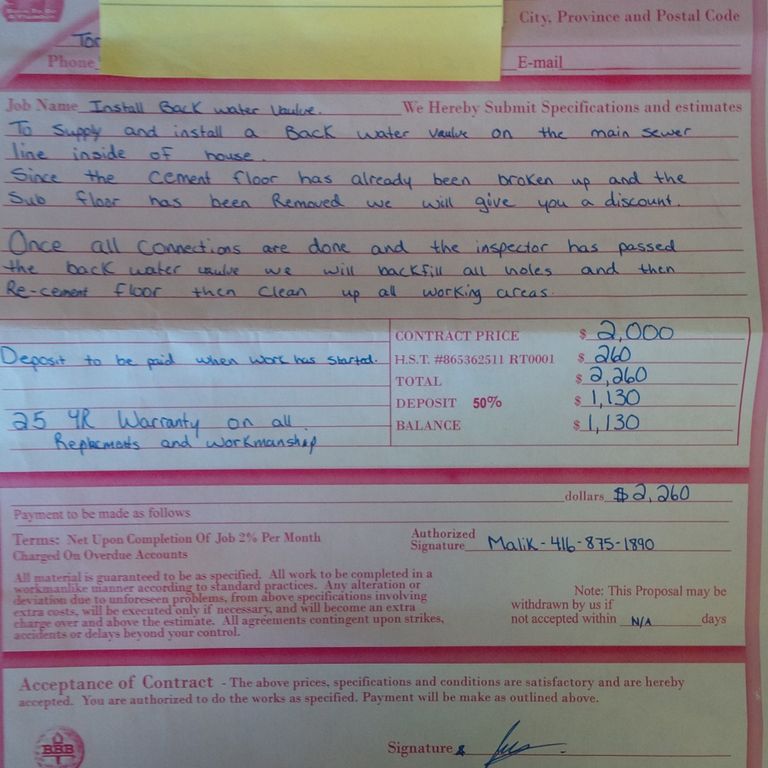 City, Province and Postal Code
Tor
Phone
E-mail
Job Name Install Back water vaulve. We Hereby Submit Specifications and estimates
To Supply and install a Back water vaulve on the main sewer
line inside of house.
Since the cement floor has already been broken up and the
Sub floor has been Removed we will give you a discount.
Once all connections are done and the inspector has passed
the back water vaulve we will backfill all holes and then
Re-cement floor then clean up all working areas.
CONTRACT PRICE $ 2,000
Deposit to be paid when work has started. H.S.T. #865362511 RT0001 $ 260
TOTAL $ 2,260
DEPOSIT 50% $ 1,130
25 YR Warranty on all BALANCE $ 1,130
Replacments and workmanship
dollars $2,260
Payment to be made as follows
Terms: Net Upon Completion Of Job 2% Per Month
Charged On Overdue Accounts
Authorized
Signature Malik-416-875-1890
All material is guaranteed to be as specified. All work to be completed in a
workmanlike manner according to standard practices. Any alteration or
deviation due to unforeseen problems, from above specifications involving
extra costs, will be executed only if necessary, and will become an extra
charge over and above the estimate. All agreements contingent upon strikes,
accidents or delays beyond your control.
Note: This Proposal may be
withdrawn by us if
not accepted within N/A days
Acceptance of Contract - The above prices, specifications and conditions are satisfactory and are hereby
accepted. You are authorized to do the works as specified. Payment will be make as outlined above.
BBB
Signature